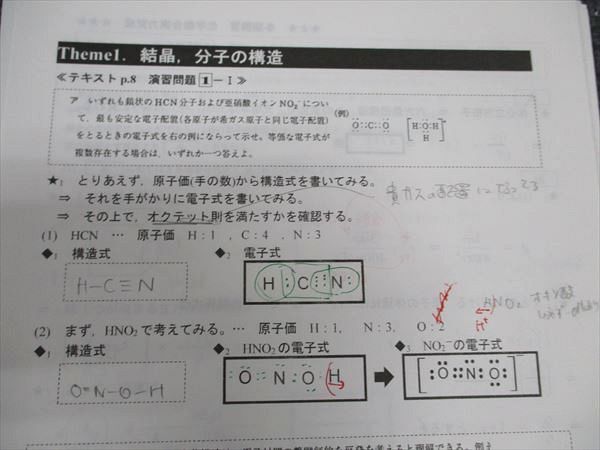 Theme1. 結晶，分子の構造
≪テキスト p.8 演習問題 1－Ⅰ≫
ア いずれも鎖状の HCN 分子および亜硝酸イオン NO₂⁻につい
て，最も安定な電子配置(各原子が希ガス原子と同じ電子配置)
をとるときの電子式を右の例にならって示せ。等価な電子式が
複数存在する場合は，いずれか一つ答えよ。
(例)
O::C::O [H:O:H]⁺
H
★₁ とりあえず，原子価(手の数)から構造式を書いてみる。
⇒ それを手がかりに電子式を書いてみる。
⇒ その上で，オクテット則を満たすかを確認する。
貴ガスの配置になってる
(1) HCN … 原子価 H：1 ，C：4 ，N：3
◆₁ 構造式 ◆₂ 電子式
H－C≡N
H:C:::N:
(2) まず，HNO₂で考えてみる。… 原子価 H：1， N：3， O：2
HNO₂
H⁺
◆₁ 構造式 ◆₂ HNO₂の電子式 ◆₃ NO₂⁻の電子式
O=N-O-H
O N O H
➡
[:O::N:O:]⁻